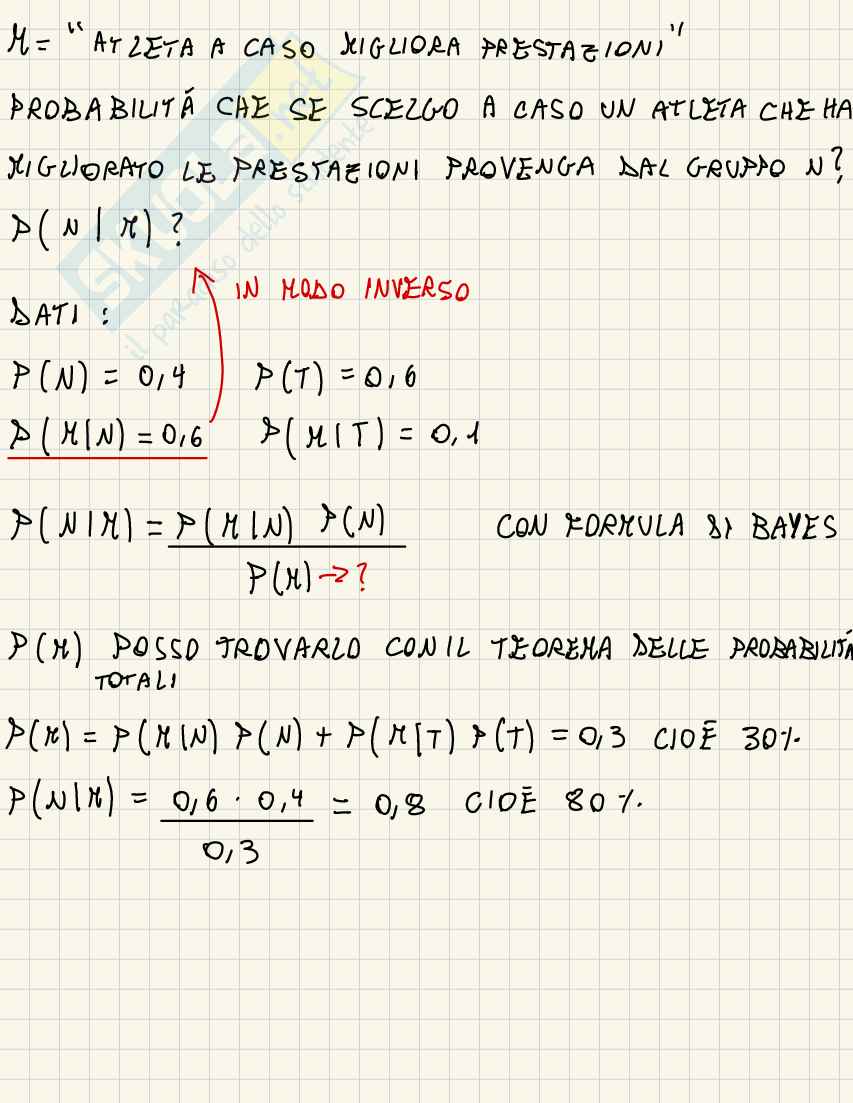 M = "ATLETA A CASO MIGLIORA PRESTAZIONI"
PROBABILITÁ CHE SE SCELGO A CASO UN ATLETA CHE HA
MIGLIORATO LE PRESTAZIONI PROVENGA DAL GRUPPO N?
P(N|M)?
IN MODO INVERSO
DATI:
P(N) = 0,4 P(T) = 0,6
P(M|N) = 0,6 P(M|T) = 0,1
P(N|M) = P(M|N) P(N) CON FORMULA DI BAYES
P(M) → ?
P(M) POSSO TROVARLO CON IL TEOREMA DELLE PROBABILITÁ
TOTALI
P(M) = P(M|N) P(N) + P(M|T) P(T) = 0,3 CIOÈ 30%
P(N|M) = 0,6 · 0,4 = 0,8 CIOÈ 80%
0,3
SKUOLA.net
il paradiso dello studente